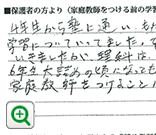 ■保護者の方より（家庭教師をつける前の学習
4年生から塾に通い、もん
学習についていてました。
いをましたが、理科は、
6年生大詰めの頃になっても
家庭教師をつけること